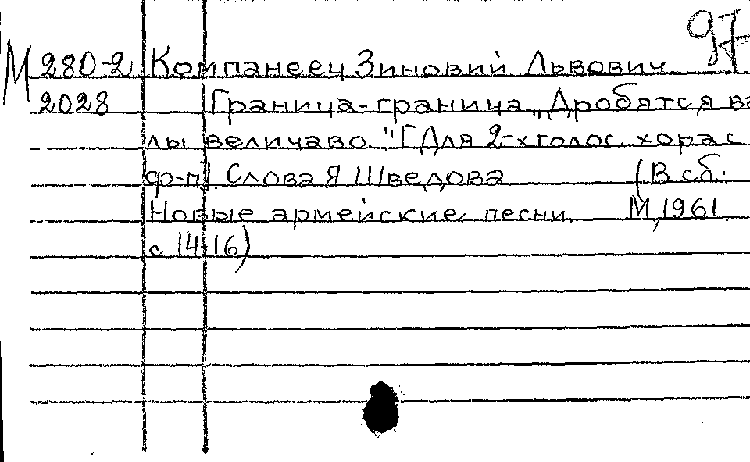 97
М 280-2 Компанеец Зиновий Львович
2028 Граница-граница „Дробятся ва
лы величаво." [Для 2-х голос. хора с
ф-п] Слова Я Шведова (В сб.
Новые армейские песни. М, 1961
с 14-16)